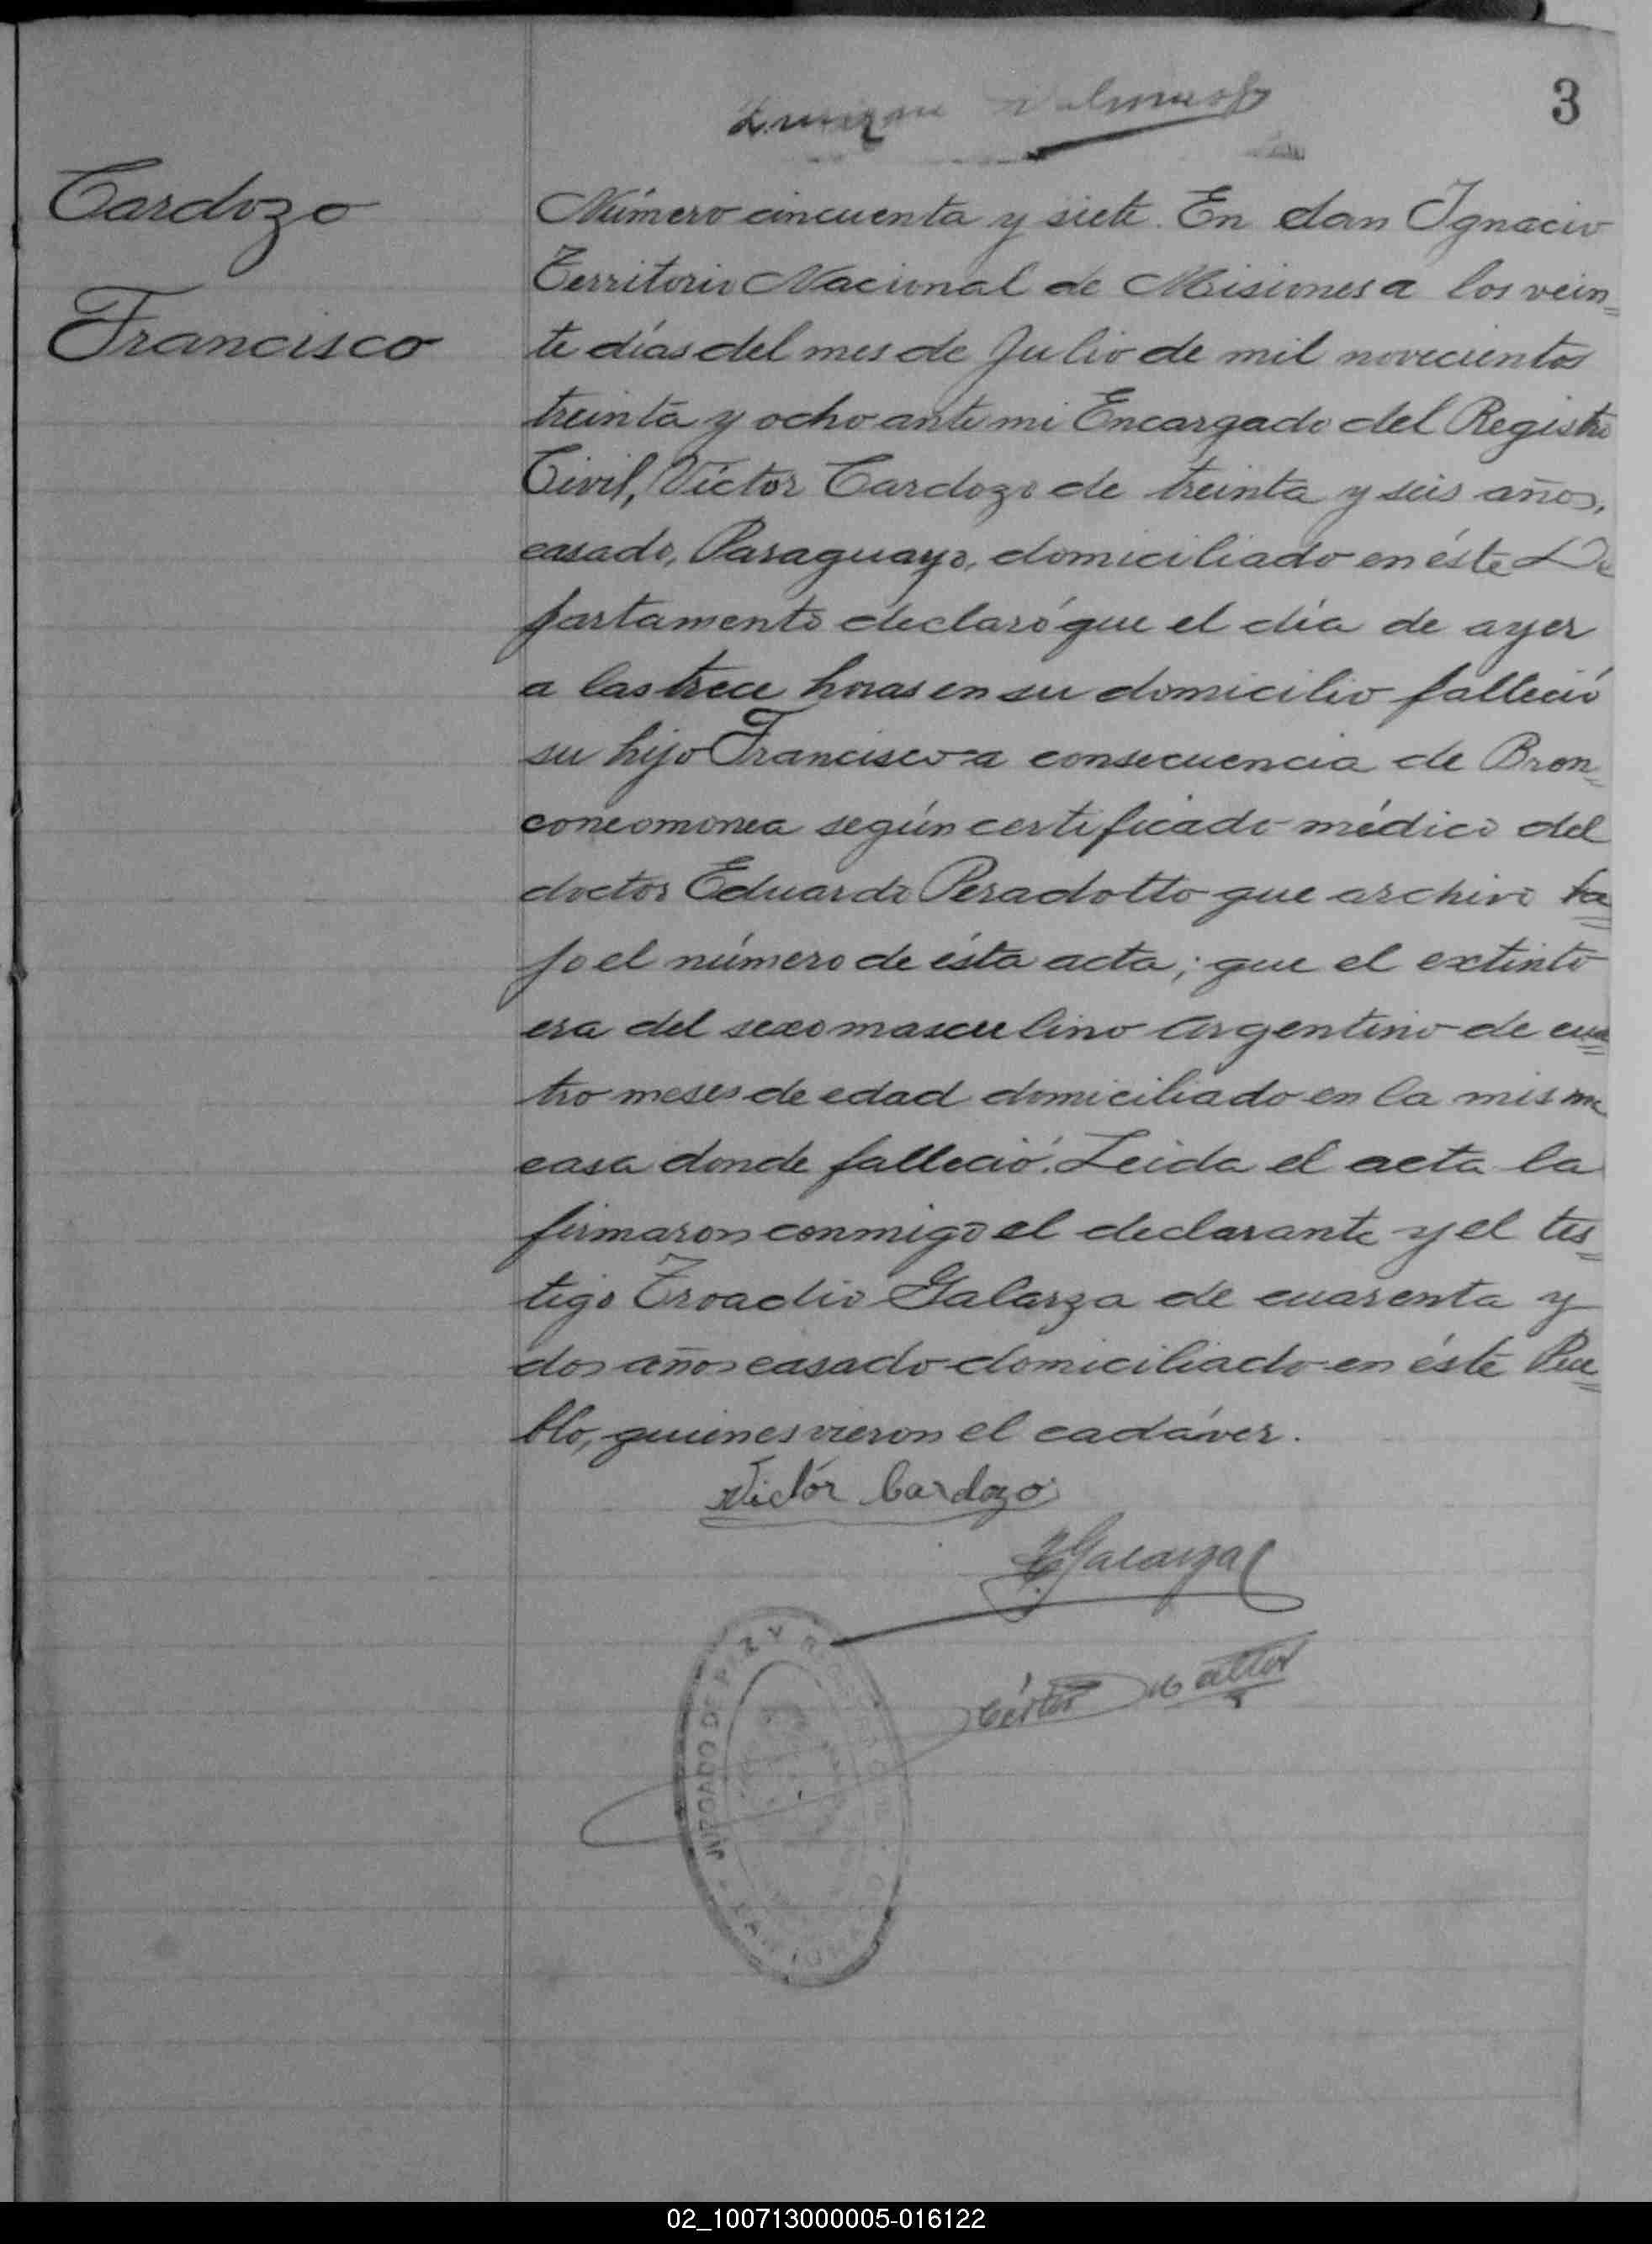 3
Cardozo
Francisco
Número cincuenta y siete. En San Ignacio
Territorio Nacional de Misiones a los vein=
te días del mes de Julio de mil novecientos
treinta y ocho ante mi Encargado del Registro
Civil, Víctor Cardozo de treinta y seis años,
casado, Paraguayo, domiciliado en éste De
partamento declaró que el día de ayer
a las trece horas en su domicilio falleció
su hijo Francisco a consecuencia de Bron=
coneomonea según certificado médico del
doctor Eduardo Peradotto que archivo ba=
jo el número de ésta acta; que el extinto
era del sexo masculino argentino de cua=
tro meses de edad domiciliado en la misma
casa donde falleció. Leida el acta la
firmaron conmigo el declarante y el tes=
tigo Troadio Galarza de cuarenta y
dos años casado domiciliado en éste Pue=
blo, quienes vieron el cadáver.
Victór Cardozo
Galarza
JUZGADO DE PAZ Y
02_100713000005-016122